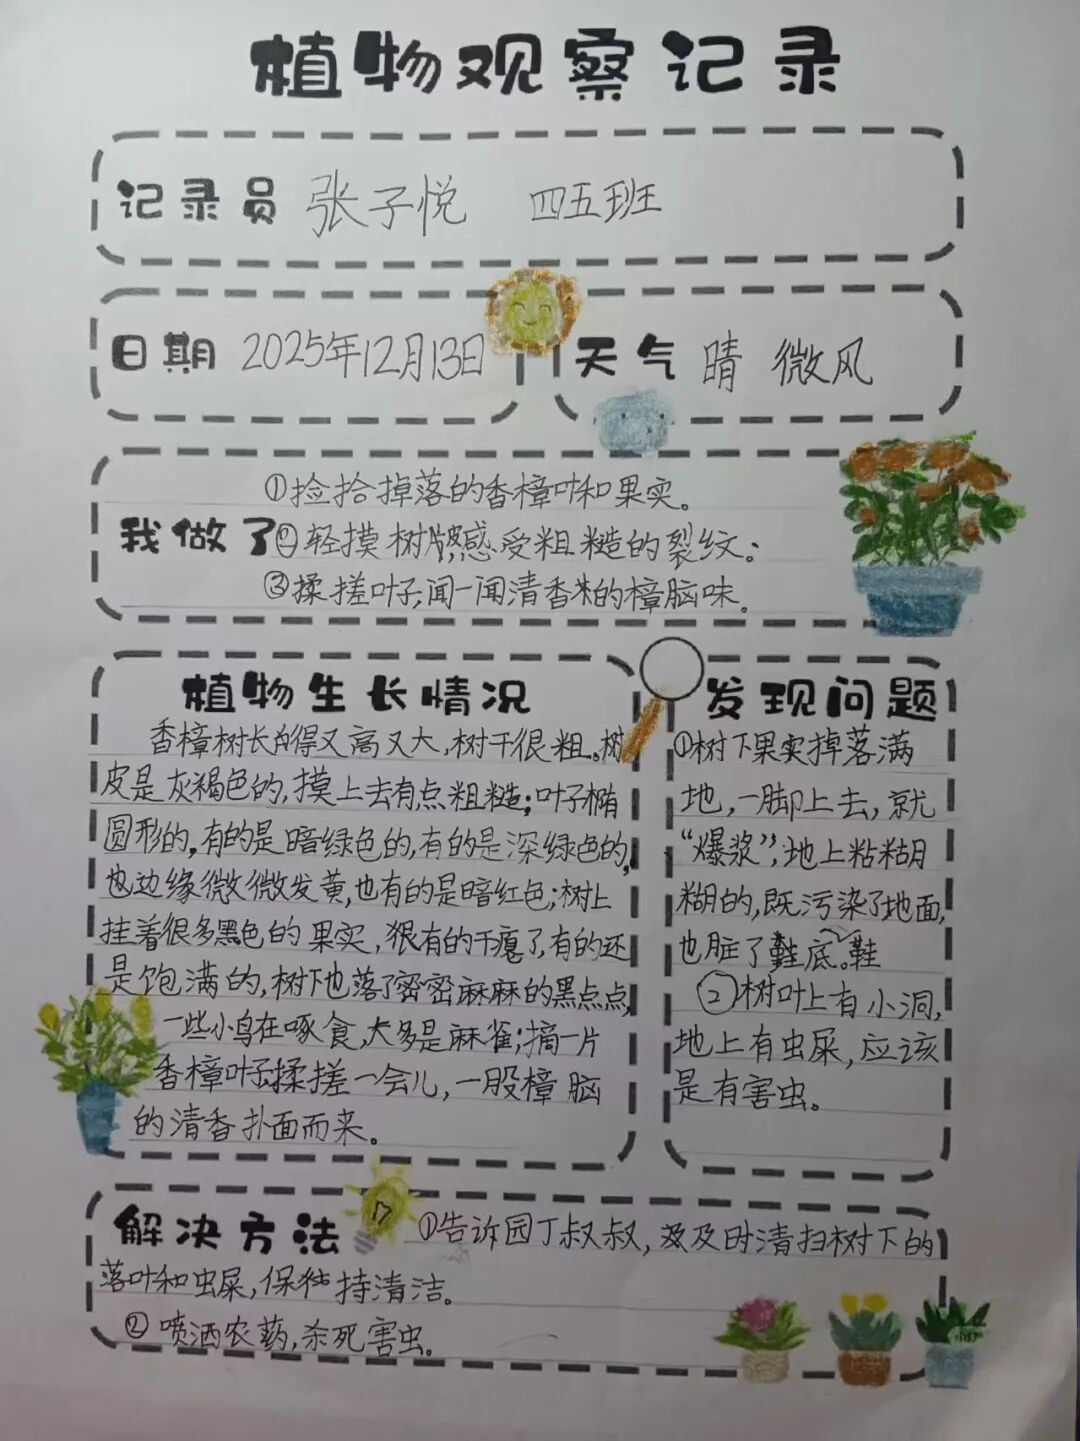 植物观察记录
记录员 张子悦 四五班
日期 2025年12月13日 天气 晴 微风
①捡拾掉落的香樟叶和果实。
我做了②轻摸树皮感受粗糙的裂纹。
③揉搓叶子,闻一闻清香的樟脑味。
植物生长情况
香樟树长得又高又大,树干很粗。树
皮是灰褐色的,摸上去有点粗糙;叶子椭
圆形的,有的是暗绿色的,有的是深绿色的,
边缘微微发黄,也有的是暗红色;树上
挂着很多黑色的果实,有的干瘪了,有的还
是饱满的,树下也落了密密麻麻的黑点点,
一些小鸟在啄食,大多是麻雀;摘一片
香樟叶子揉搓一会儿,一股樟脑
的清香扑面而来。
发现问题
①树下果实掉落满
地,一脚上去,就
“爆浆”,地上粘糊
糊的,既污染了地面,
也脏了鞋底。
②树叶上有小洞,
地上有虫屎,应该
是有害虫。
解决方法 ①告诉园丁叔叔,及时清扫树下的
落叶和虫屎,保持清洁。
②喷洒农药,杀死害虫。